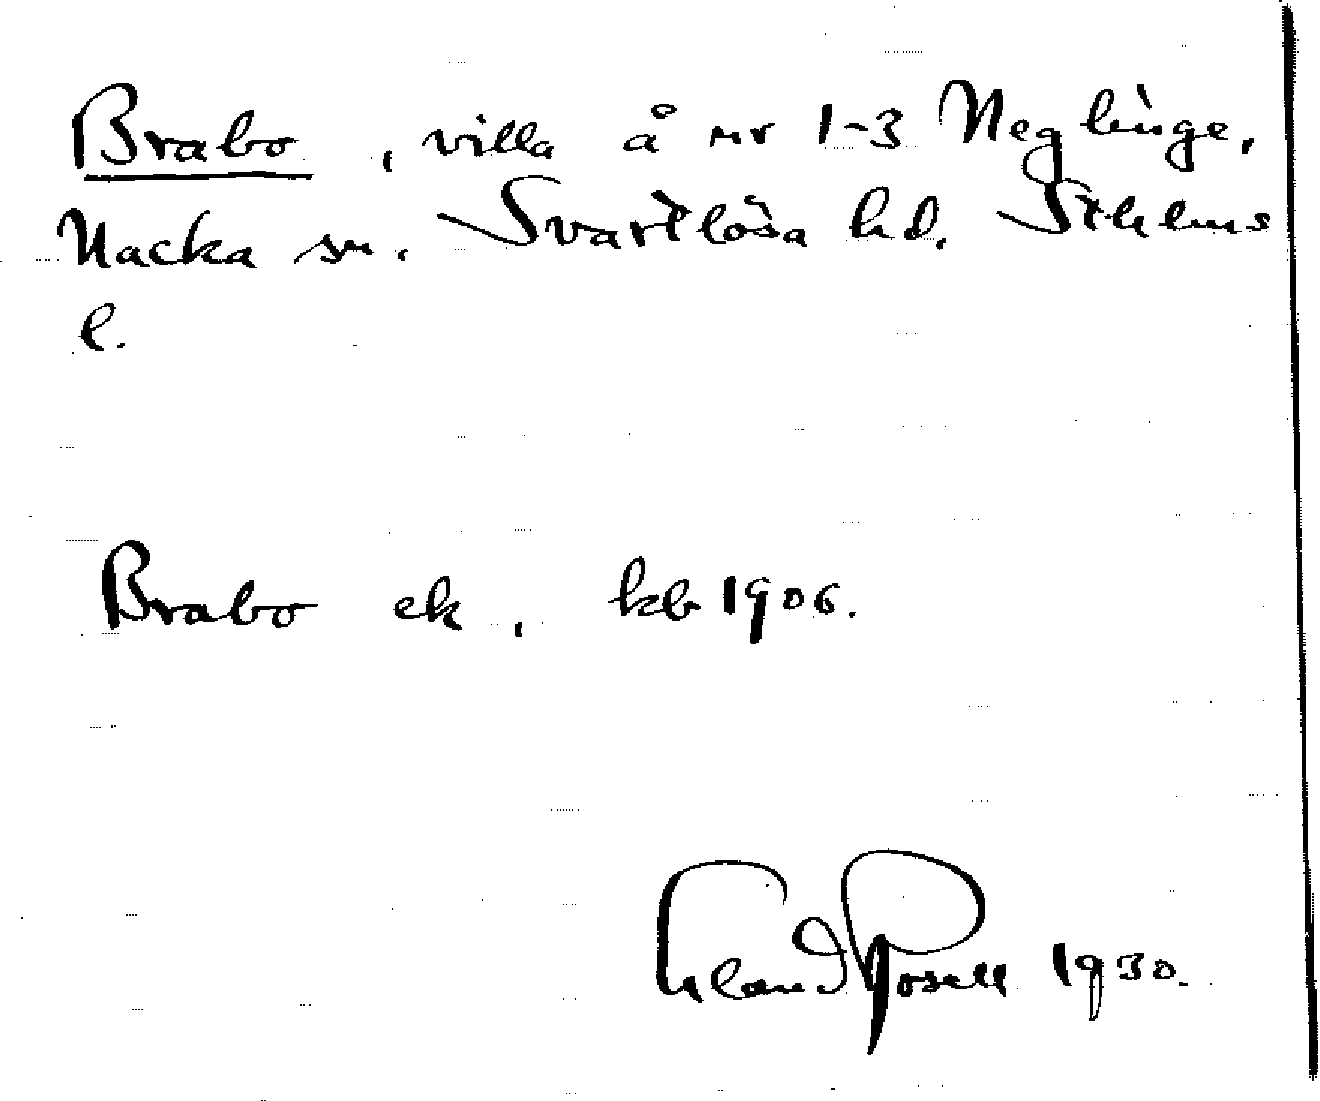 Brabo, villa å nr 1-3 Neglinge,
Nacka sn. Svartlösa hd. Sthlms
l.
Brabo ek, kb 1906.
Erland Rosell 1930.